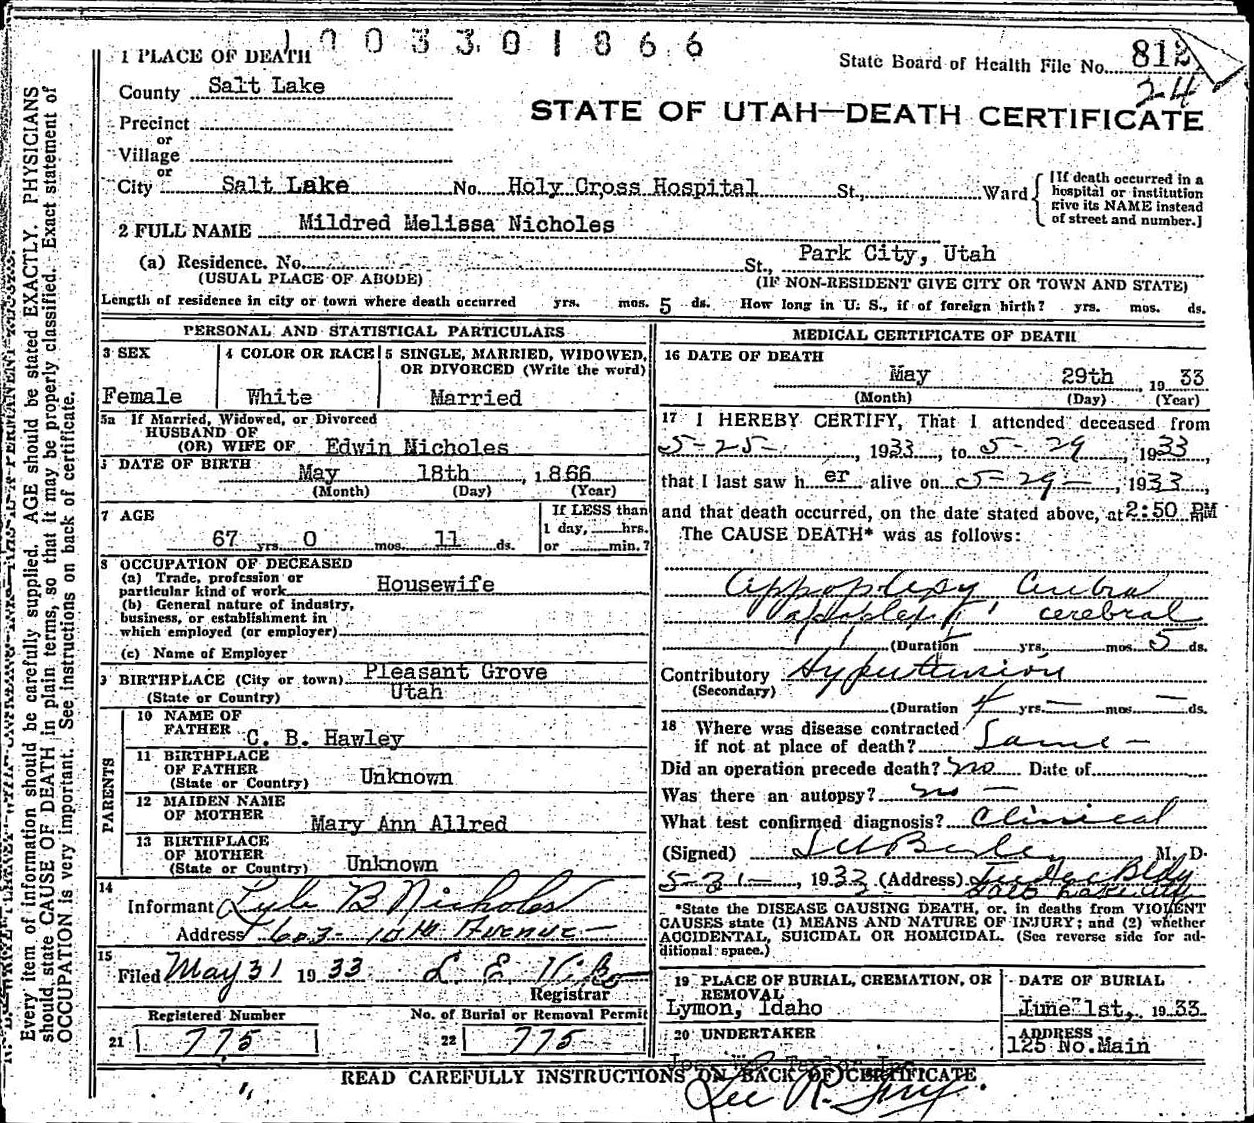 1003301866
1 PLACE OF DEATH
State Board of Health File No. 812
24
County Salt Lake
STATE OF UTAH—DEATH CERTIFICATE
Precinct
or
Village
or
City Salt Lake No. Holy Cross Hospital St., Ward
[If death occurred in a hospital or institution give its NAME instead of street and number.]
2 FULL NAME Mildred Melissa Nicholes
(a) Residence. No. St., Park City, Utah
(USUAL PLACE OF ABODE) (IF NON-RESIDENT GIVE CITY OR TOWN AND STATE)
Length of residence in city or town where death occurred yrs. mos. 5 ds. How long in U. S., if of foreign birth? yrs. mos. ds.
PERSONAL AND STATISTICAL PARTICULARS
3 SEX
Female
4 COLOR OR RACE
White
5 SINGLE, MARRIED, WIDOWED,
OR DIVORCED (Write the word)
Married
5a If Married, Widowed, or Divorced
HUSBAND OF
(OR) WIFE OF Edwin Nicholes
DATE OF BIRTH
May 18th, 1866
(Month) (Day) (Year)
7 AGE
67 yrs. 0 mos. 11 ds.
If LESS than
1 day, hrs.
or min.?
8 OCCUPATION OF DECEASED
(a) Trade, profession or
particular kind of work Housewife
(b) General nature of industry,
business, or establishment in
which employed (or employer)
(c) Name of Employer
9 BIRTHPLACE (City or town) Pleasant Grove
(State or Country) Utah
PARENTS
10 NAME OF
FATHER C. B. Hawley
11 BIRTHPLACE
OF FATHER
(State or Country) Unknown
12 MAIDEN NAME
OF MOTHER Mary Ann Allred
13 BIRTHPLACE
OF MOTHER
(State or Country) Unknown
14
Informant Lyle B Nicholes
Address 603- 10th Avenue
15
Filed May 31 1933 L. E.
Registrar
Registered Number No. of Burial or Removal Permit
21 775 22 775
MEDICAL CERTIFICATE OF DEATH
16 DATE OF DEATH
May 29th, 1933
(Month) (Day) (Year)
17 I HEREBY CERTIFY, That I attended deceased from
5-25-, 1933, to 5-29, 1933,
that I last saw her alive on 5-29-, 1933,
and that death occurred, on the date stated above, at 2:50 PM
The CAUSE DEATH* was as follows:
Appoplexy
apoplexy cerebral
(Duration yrs. mos. 5 ds.
Contributory Hypertension
(Secondary)
(Duration 4 yrs. — mos. — ds.
18 Where was disease contracted
if not at place of death? Same —
Did an operation precede death? no Date of
Was there an autopsy? no —
What test confirmed diagnosis? Clinical
(Signed) M. D.
5-31-, 1933 (Address) Bldg
Salt Lake City
*State the DISEASE CAUSING DEATH, or, in deaths from VIOLENT
CAUSES state (1) MEANS AND NATURE OF INJURY; and (2) whether
ACCIDENTAL, SUICIDAL OR HOMICIDAL. (See reverse side for ad-
ditional space.)
19 PLACE OF BURIAL, CREMATION, OR
REMOVAL
Lymon, Idaho
DATE OF BURIAL
June 1st, 1933
20 UNDERTAKER
ADDRESS
125 No. Main
READ CAREFULLY INSTRUCTIONS ON BACK OF CERTIFICATE
Every item of information should be carefully supplied. AGE should be stated EXACTLY. PHYSICIANS
should state CAUSE OF DEATH in plain terms, so that it may be properly classified. Exact statement of
OCCUPATION is very important. See instructions on back of certificate.